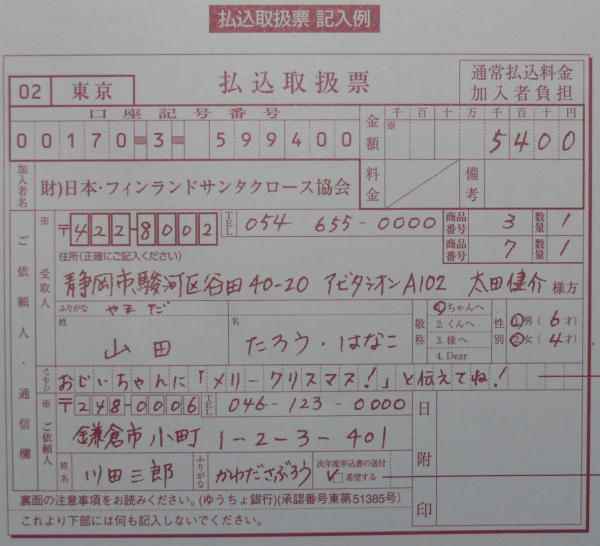 払込取扱票 記入例
02 東京 払込取扱票 通常払込料金
加入者負担
口座記号番号
00170-3-599400
金額 千百十万千百十円
※ 5400
加入者名 財)日本・フィンランドサンタクロース協会
料金 備考
ご依頼人・通信欄
※ 〒422-8002 TEL 054 655-0000 商品番号 3 数量 1
商品番号 7 数量 1
住所(正確にご記入ください)
受取人 静岡市駿河区谷田40-20 アビタシオンA102 太田健介 様方
ふりがな やまだ
姓 山田 名 たろう・はなこ
敬称 1.ちゃんへ
2.くんへ
3.様へ
4.Dear
性別 1.男(6才)
2.女(4才)
おじいちゃんに「メリークリスマス!」と伝えてね!
※ 〒248-0006 TEL 046-123-0000
ご依頼人 鎌倉市小町 1-2-3-401
姓名 川田三郎 ふりがな かわださぶろう 次年度申込書の送付
✓ 希望する
日附印
裏面の注意事項をお読みください。(ゆうちょ銀行)(承認番号東第51385号)
これより下部には何も記入しないでください。